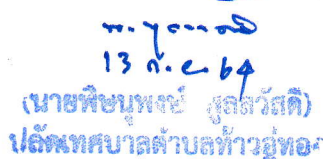 13 ก.ย. 64
(นายพิษณุพงษ์ กูลสวัสดิ์)
ปลัดเทศบาลตำบลท้าวอู่ทอง